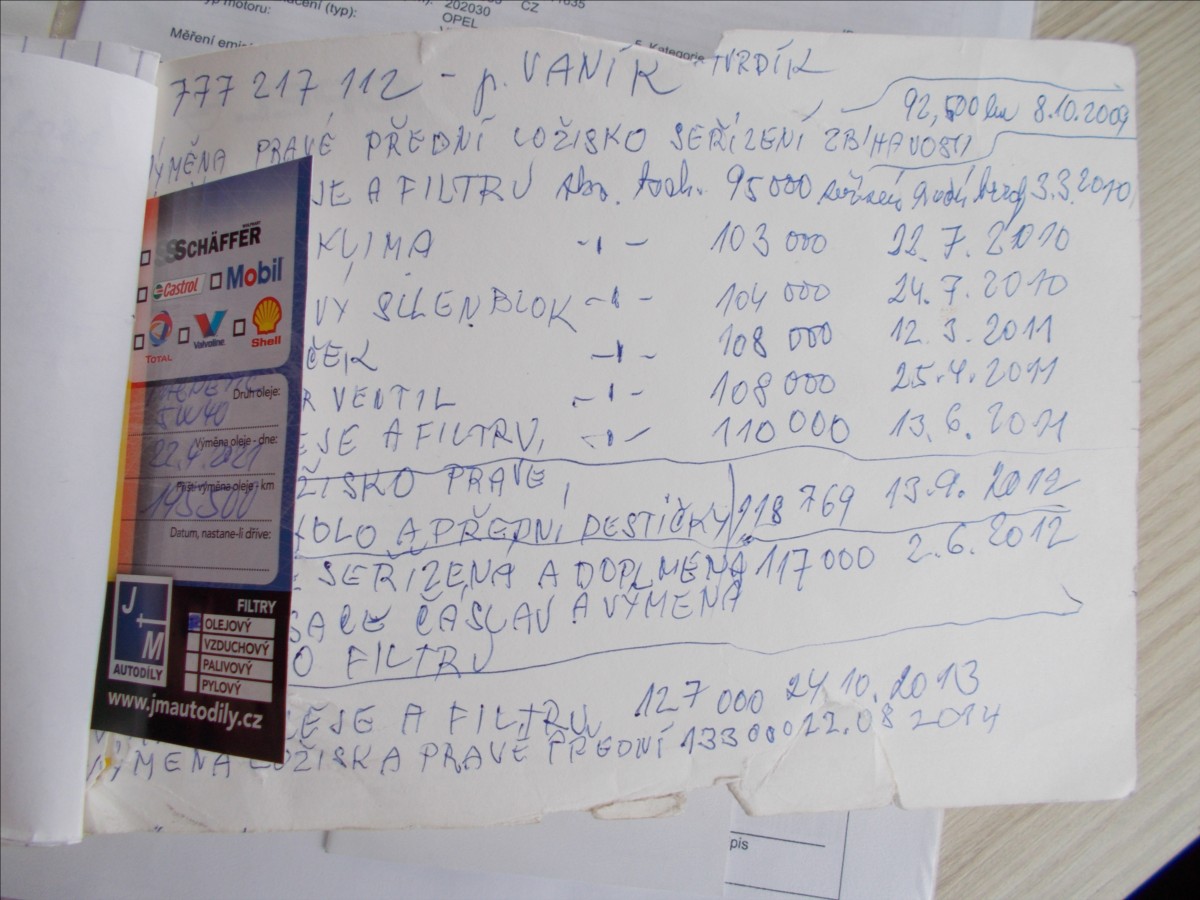 yp motoru:
načení (typ):
202030
CZ
OPEL
Měření emis
5. Kategorie
777 217 112 - p. VANÍK TVRDÍK
92,500 km 8.10.2009
VÝMĚNA PRAVÉ PŘEDNÍ LOŽISKO SEŘÍZENÍ ZBÍHAVOSTI
JE A FILTRU 95 000 3.3.2010
KLIMA -ı- 103 000 22.7.2010
VÝ SILENBLOK -ı- 104 000 24.7.2010
ČEK -ı- 108 000 12.3.2011
R VENTIL -ı- 108 000 25.4.2011
EJE A FILTRU, -ı- 110 000 13.6.2011
ŽISKO PRAVÉ,
KOLO A PŘEDNÍ DESTIČKY 118 769 13.9.2012
SEŘÍZENA A DOPLNĚNA 117 000 2.6.2012
SACE ČÁSLAV A VÝMĚNA
O FILTRU
LEJE A FILTRU 127 000 24 10.2013
VÝMĚNA LOŽISKA PRAVÉ PŘEDNÍ 133 000 22.08 2014
SCHÄFFER
Castrol Mobil
TOTAL Valvoline Shell
Druh oleje:
5W40
Výměna oleje - dne:
22.4.2021
Příští výměna oleje - km
193500
Datum, nastane-li dříve:
J+M
AUTODÍLY
FILTRY
OLEJOVÝ
VZDUCHOVÝ
PALIVOVÝ
PYLOVÝ
www.jmautodily.cz
pis